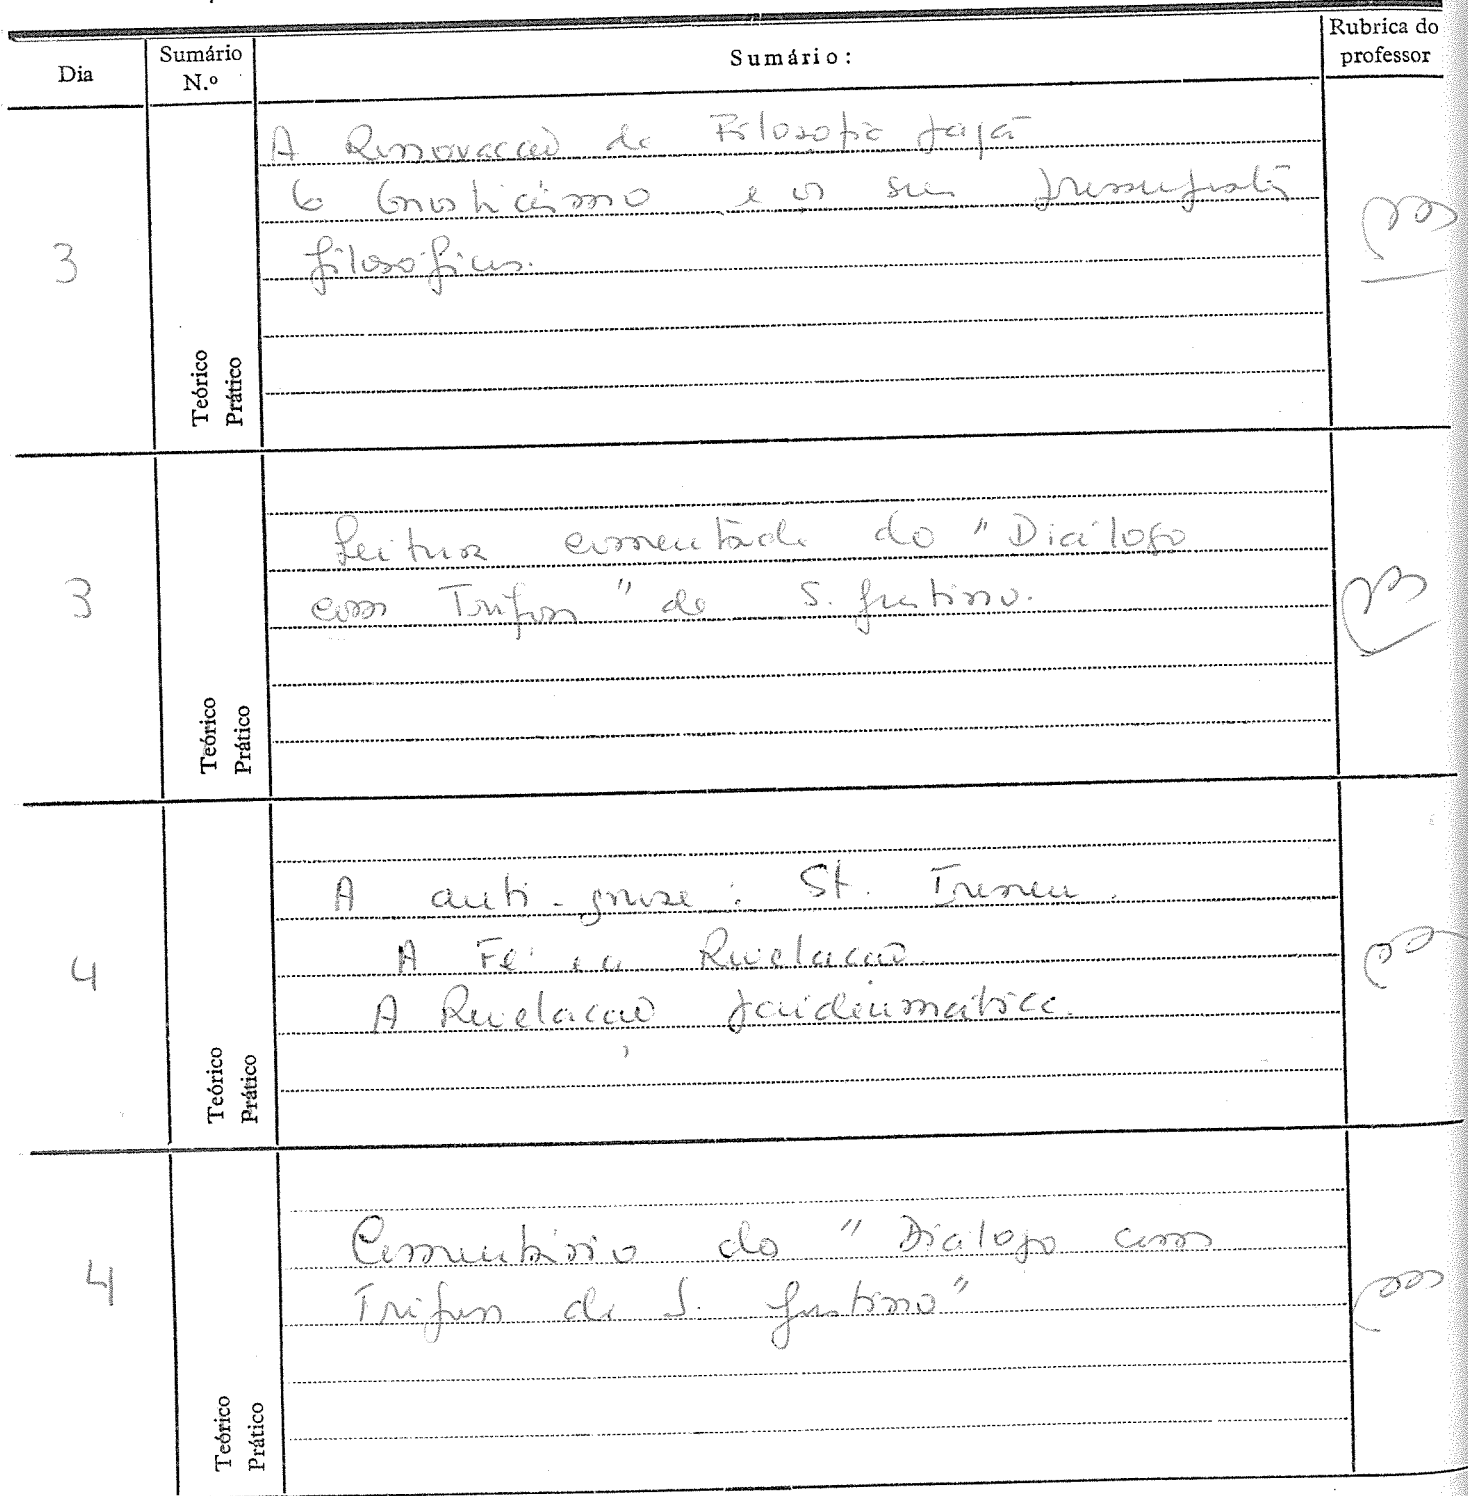 Dia
Sumário
N.º
Sumário:
Rubrica do
professor
3
A Renovação da Filosofia pagã
O Gnosticismo e os seus pressupostos
filosóficos.
Teórico
Prático
3
Leitura comentada do "Diálogo
com Trifon" de S. Justino.
Teórico
Prático
4
A anti-gnose: St. Ireneu.
A Fé e a Revelação.
A Revelação
Teórico
Prático
4
Comentário do "Diálogo com
Trifon de S. Justino"
Teórico
Prático